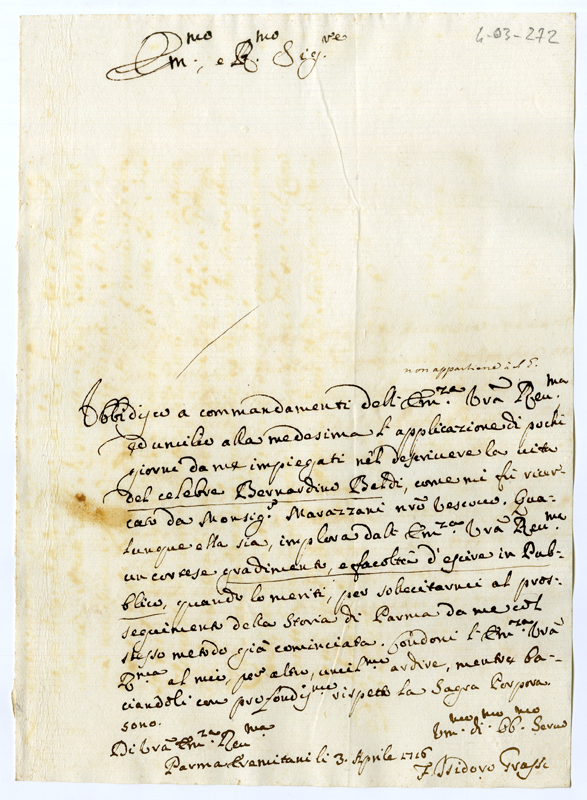 4-03-272
Em.mo, e R.mo Sig.re
non appartiene à il S.
Ubbidisco a commandamenti dell' Em.za Vrã Reu.ma
ed umilio alla medesima l'applicazione di pochi
giorni da me impiegati nel descriuere la uita
del celebre Bernardino Baldi, come mi fù ricer-
cato da Monsig.r Marazzani nrõ Vescouo. Qua-
lunque ella sia, implora dall' Em.za Vrã Reu.ma
un cortese gradimento, e facoltà d'escire in Pub-
blico, quando lo meriti, per sollecitarmi al pros-
seguimento della Storia di Parma da me col
stesso metodo già cominciata. Condoni l'Em.za Vrã
R.ma al mio, per altro, umil.mo ardire, mentre ba-
ciandoli con profondiss.mo rispetto la Sagra Porpora
sono.
Di Vrã Em.za Reu.ma
Vm.mo di.mo ob.mo Seruo
Parma Eremitani li 3. Aprile 1716
F. Isidoro Grassi